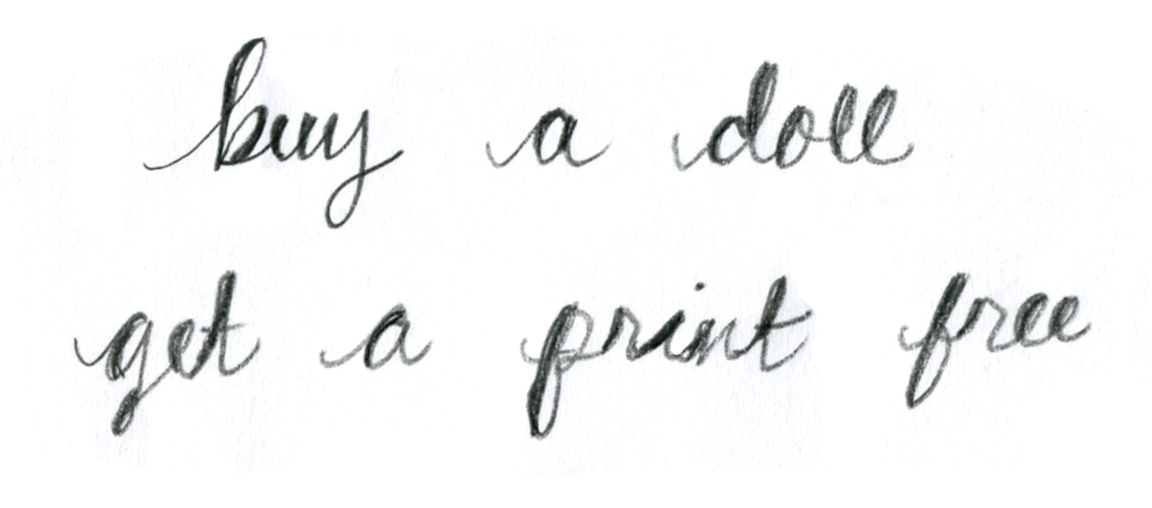 buy a doll
get a print free